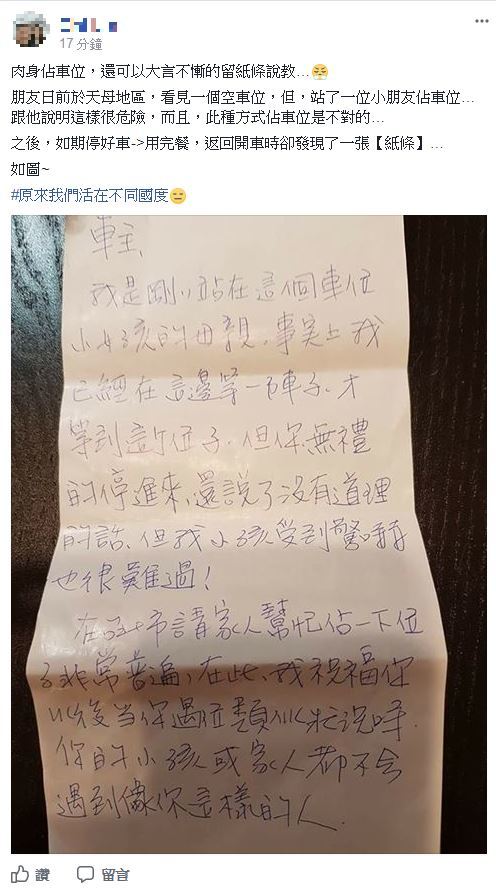 17 分鐘
肉身佔車位，還可以大言不慚的留紙條說教...
朋友日前於天母地區，看見一個空車位，但，站了一位小朋友佔車位...
跟他說明這樣很危險，而且，此種方式佔車位是不對的...
之後，如期停好車->用完餐，返回開車時卻發現了一張【紙條】...
如圖~
#原來我們活在不同國度
車主,
我是剛剛站在這個車位
小女孩的母親,事実上我
已經在這邊等一下車子,才
等到這個位子,但你無禮
的停進來,還說了沒有道理
的話,但我小孩受到驚嚇
也很難過!
在 市請家人幫忙佔一下位
子非常普遍,在此,我祝福你
以後當你遇這類似狀況時,
你的小孩或家人都不会
遇到像你這樣的人.
讚 留言